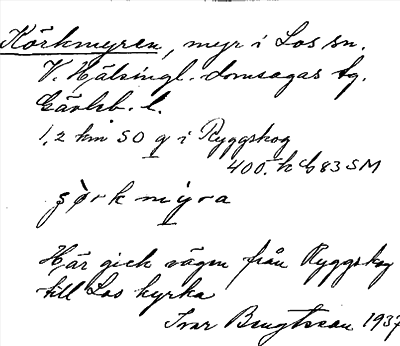 Körkmyren, myr i Los sn.
V. Hälsingl. domsagas tg.
Gävleb. l.
1,2 km SO g i Ryggskog
400. k 683 SM
myra
Här gick vägen från Ryggskog
till Los kyrka
Ivar Bengtsson 1937